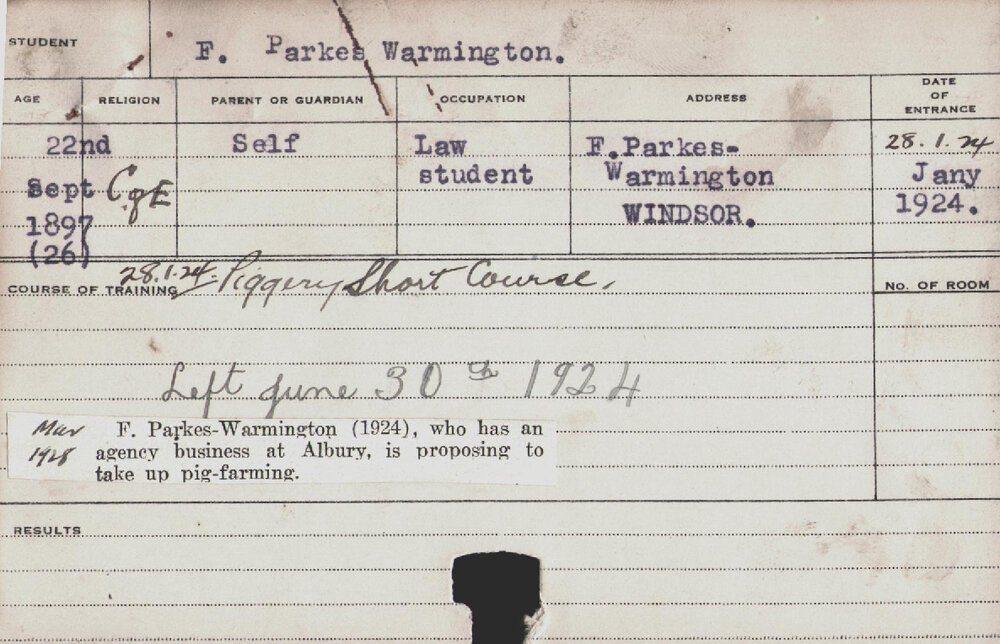 STUDENT F. Parkes Warmington.
AGE RELIGION PARENT OR GUARDIAN OCCUPATION ADDRESS DATE OF ENTRANCE
22nd Sept 1897 (26)
C of E
Self
Law student
F.Parkes-
Warmington
WINDSOR.
28.1.24
Jany
1924.
COURSE OF TRAINING 28.1.24. Piggery Short Course.
No. OF ROOM
Left June 30th 1924
Mar
1928
F. Parkes-Warmington (1924), who has an
agency business at Albury, is proposing to
take up pig-farming.
RESULTS